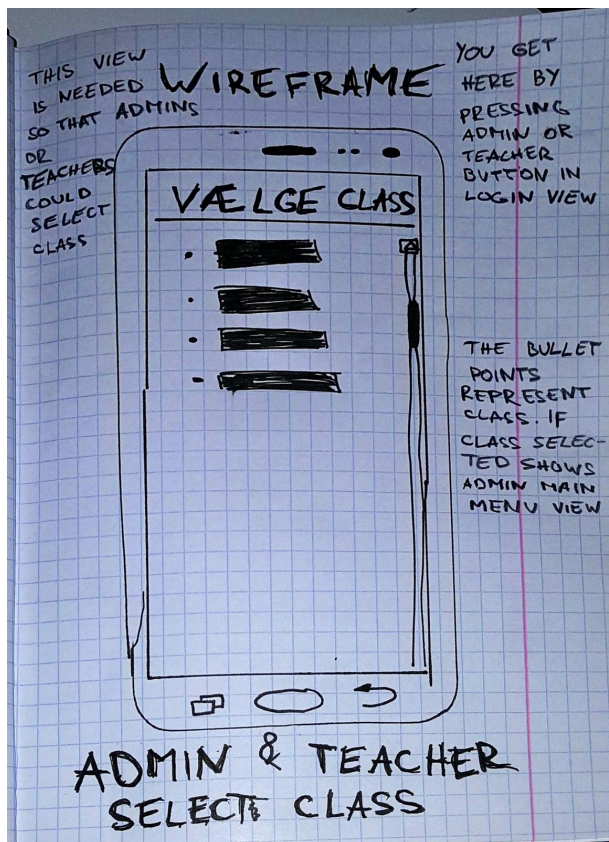 WIREFRAME
THIS VIEW
IS NEEDED
SO THAT ADMINS
OR
TEACHERS
COULD
SELECT
CLASS
YOU GET
HERE BY
PRESSING
ADMIN OR
TEACHER
BUTTON IN
LOGIN VIEW
VÆLGE CLASS
THE BULLET
POINTS
REPRESENT
CLASS. IF
CLASS SELEC-
TED SHOWS
ADMIN MAIN
MENU VIEW
ADMIN & TEACHER
SELECT CLASS